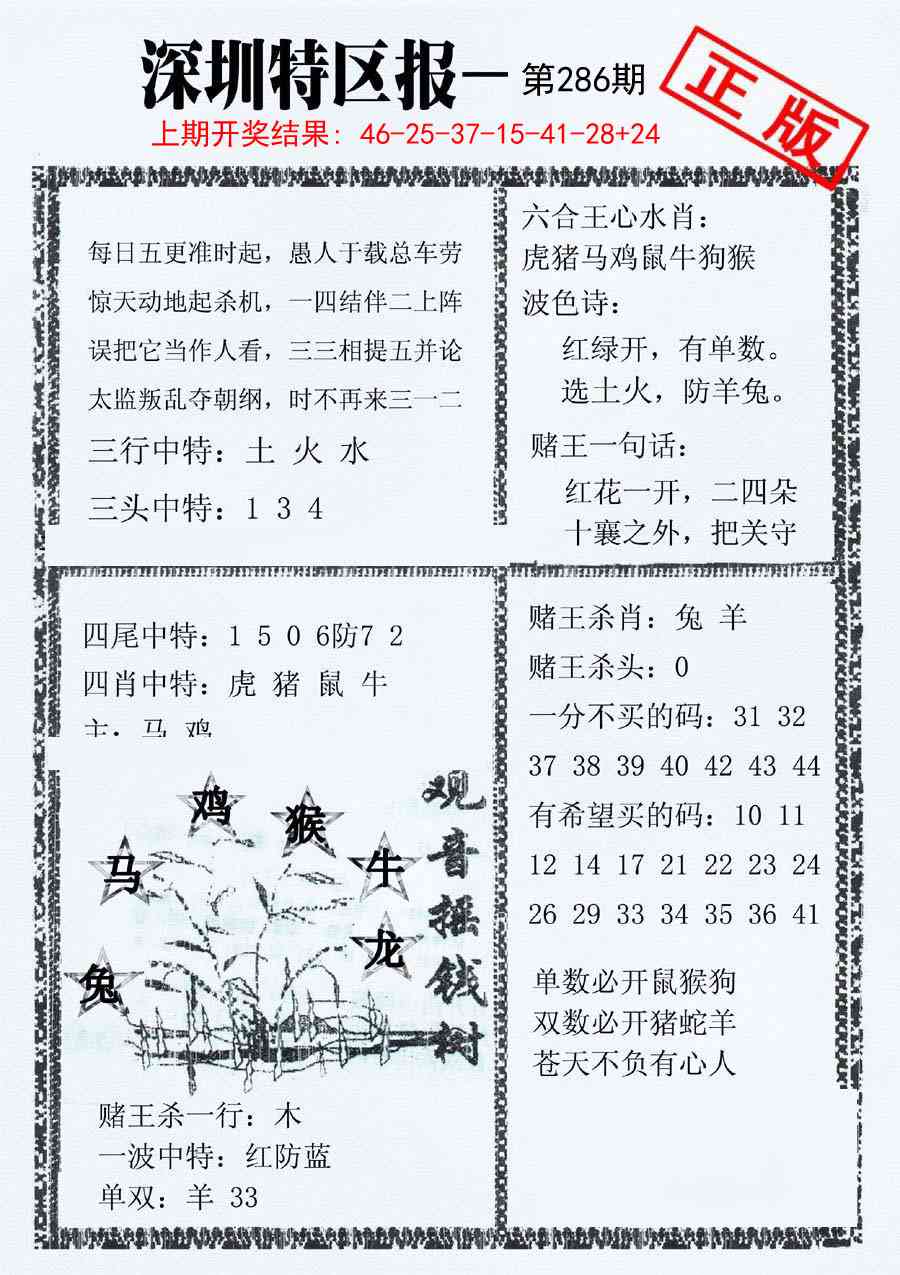 深圳特区报一 第286期
正版
上期开奖结果：46-25-37-15-41-28+24
每日五更准时起，愚人于载总车劳
惊天动地起杀机，一四结伴二上阵
误把它当作人看，三三相提五并论
太监叛乱夺朝纲，时不再来三一二
三行中特：土 火 水
三头中特：1 3 4
六合王心水肖：
虎猪马鸡鼠牛狗猴
波色诗：
红绿开，有单数。
选土火，防羊兔。
赌王一句话：
红花一开，二四朵
十襄之外，把关守
四尾中特：1 5 0 6防7 2
四肖中特：虎 猪 鼠 牛
主：马 鸡
鸡
猴
马
牛
龙
兔
观音摇钱树
赌王杀一行：木
一波中特：红防蓝
单双：羊 33
赌王杀肖：兔 羊
赌王杀头：0
一分不买的码：31 32
37 38 39 40 42 43 44
有希望买的码：10 11
12 14 17 21 22 23 24
26 29 33 34 35 36 41
单数必开鼠猴狗
双数必开猪蛇羊
苍天不负有心人